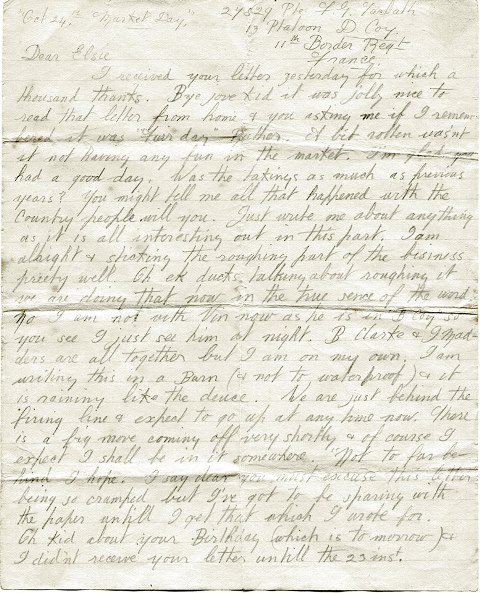 "Oct 24th "Market Day"
29529 Pte
13 Platoon D Coy.
11th Border Regt
France
Dear Elsie
I received your letter yesterday for which a
thousand thanks. Bye jove kid it was jolly nice to
read that letter from home & you asking me if I remem-
bered it was "Fair day" Rather. A bit rotten wasnt
it not having any fun in the market. I'm glad you
had a good day. Was the takings as much as previous
years? You might tell me all that happened with the
Country people will you. Just write me about anything
as it is all interesting out in this part. I am
alright & sticking the roughing part of the business
preety well. Oh ek ducks, talking about roughing it
we are doing that now in the true sence of the word
No I am not with Vin now as he is in Coy so
you see I just see him at night. B Clarke & J Mad-
ders are all together but I am on my own. I am
writing this in a Barn (& not to waterproof) & it
is raining like the deuce. We are just behind the
firing line & expect to go up at any time now. There
is a big move coming off very shortly & of course I
expect I shall be in it somewhere. "Not to far be-
hind I hope. I say dear you must excuse this letter
being so cramped but I've got to be sparing with
the paper untill I get that which I wrote for.
Oh kid about your Birthday (which is to morrow) &
I didn't receive your letter untill the 23 inst.